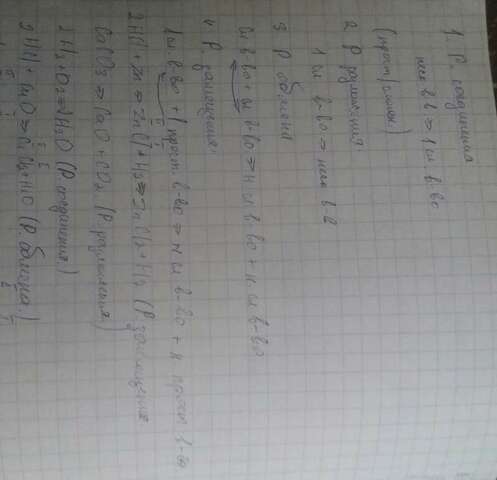 1 Р. соединения
неск в.в => 1 сл. в-во
(прост/сложн.)
2 Р разложения:
1 сл в-во => неск в-в
3 Р обмена
сл в-во + сл в-во => н сл в-во + н сл в-во
4 Р. замещения:
1 сл. в-во + 1 прост. в-во => н сл в-во + н прост в-во
2HCl + Zn => ZnCl2 + H2 (Р. замещения
CaCO3 => CaO + CO2 (Р. разложения)
2H2 + O2 => 2H2O (Р. соединения.)
(Р. обмена.)